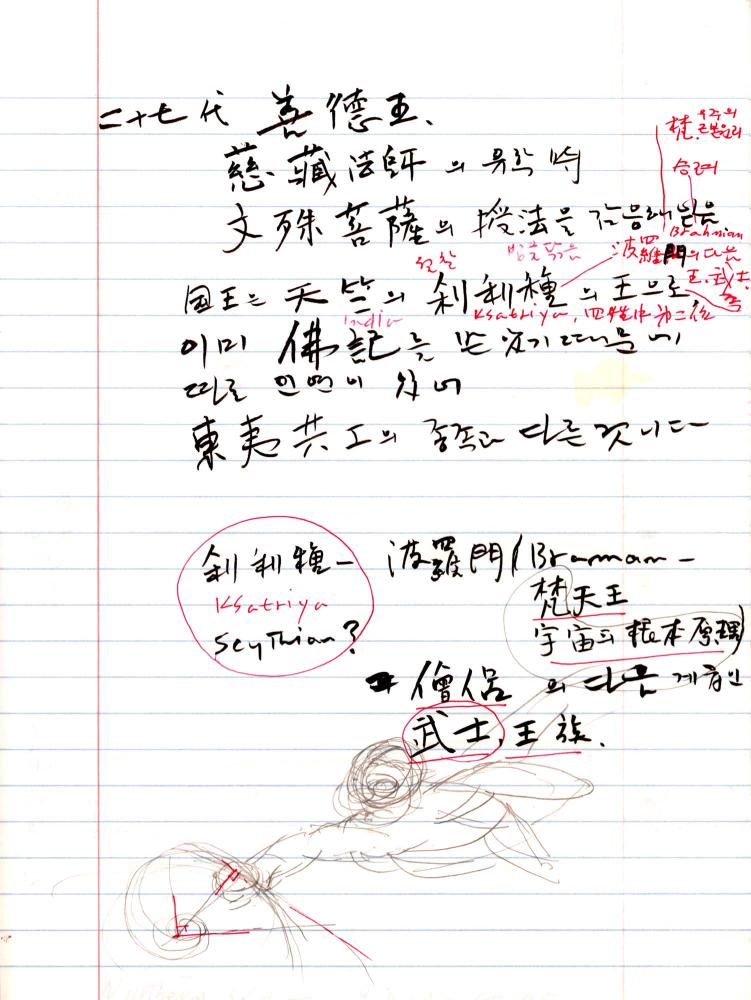 二十七代 善德王.
慈藏法師의 유학 時
文殊菩薩의 授法을 감응해 받음
梵, 우주의 근본원리
승려
Brahmian
波羅門의 다음
王, 武士.
족
国王은 天竺의 刹利種의 王으로,
찰
India
Ksatriya, 四姓中 为二位
이미 佛記를 받았기 때문에
따로 인연이 있어
東夷共工의 종족과 다른 것이다
刹利種 —
Ksatriya
Scythian?
波羅門(Bramman —
梵天王
宇宙의 根本原理)
➔ 僧侶의 다음 계층인
武士, 王族.